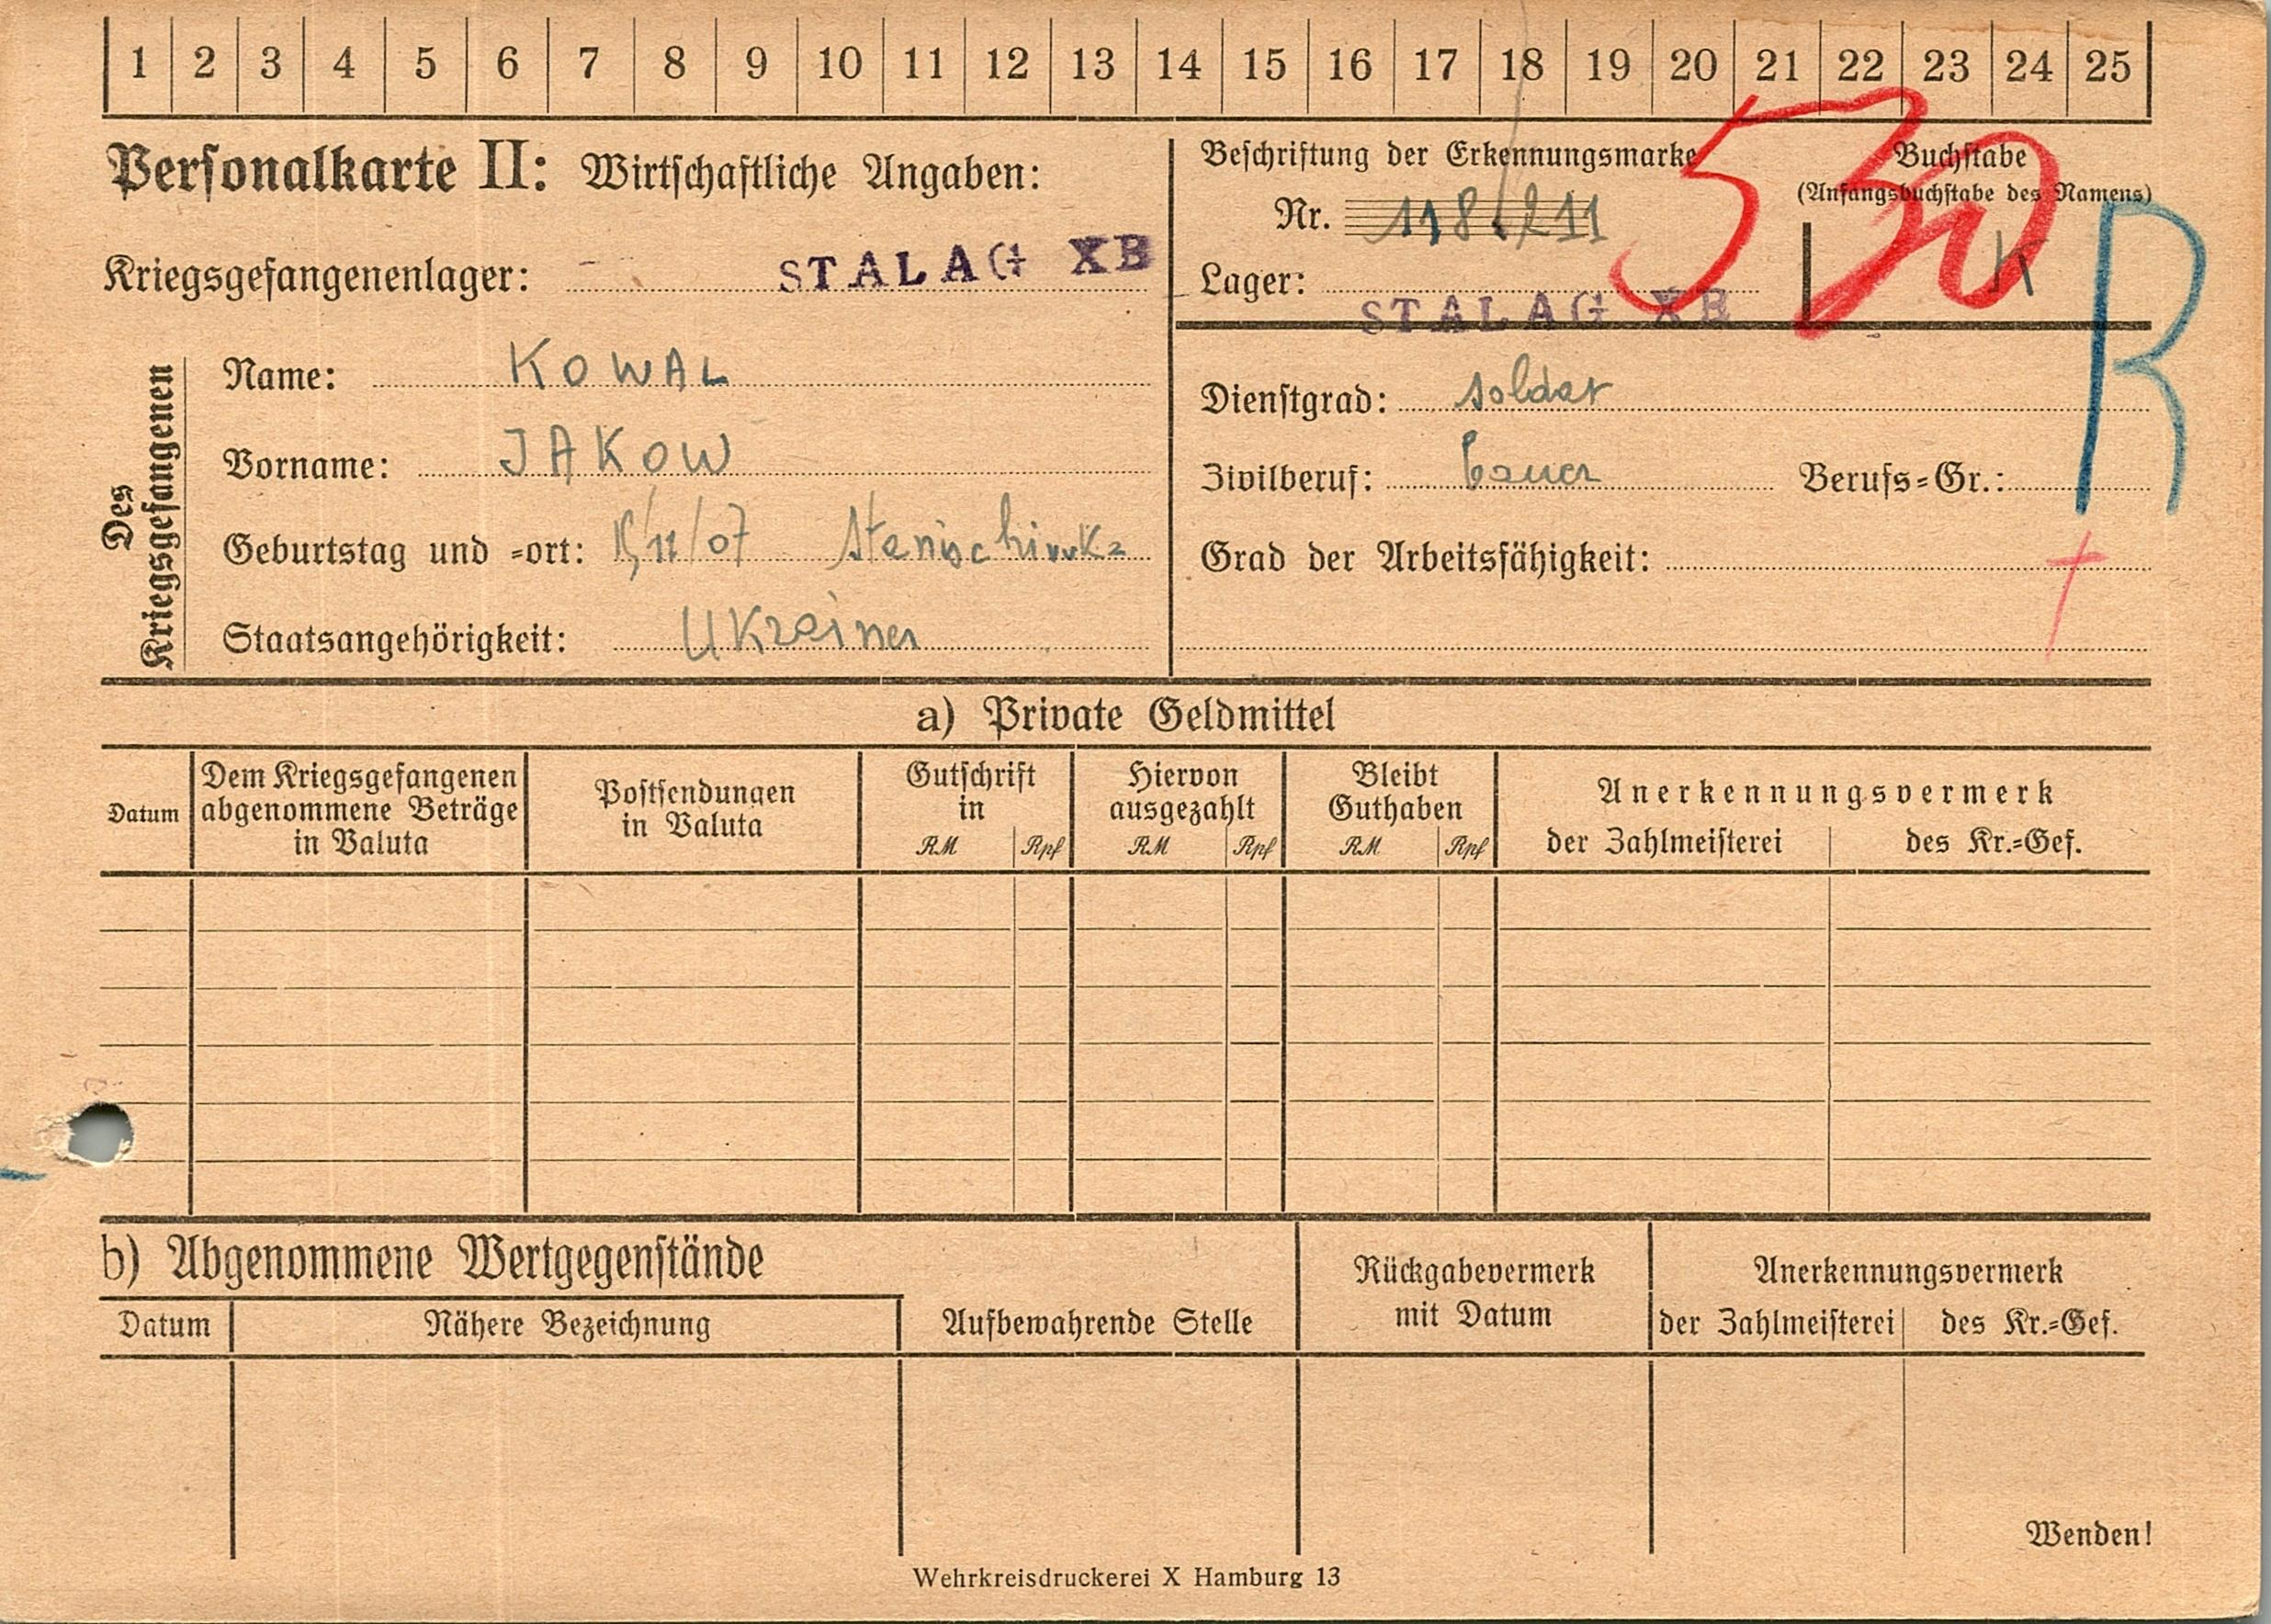 1 2 3 4 5 6 7 8 9 10 11 12 13 14 15 16 17 18 19 20 21 22 23 24 25
Personalkarte II: Wirtschaftliche Angaben:
Kriegsgefangenenlager: STALAG XB
Beschriftung der Erkennungsmarke
Nr. 118211
Lager: STALAG XB
Buchstabe
(Anfangsbuchstabe des Namens)
K
530
R
Des Kriegsgefangenen
Name: KOWAL
Vorname: JAKOW
Geburtstag und =ort: /11/07
Staatsangehörigkeit: Ukrainer
Dienstgrad: soldat
Zivilberuf: bauer Berufs=Gr.:
Grad der Arbeitsfähigkeit:
a) Private Geldmittel
Datum
Dem Kriegsgefangenen
abgenommene Beträge
in Valuta
Postsendungen
in Valuta
Gutschrift
in
RM Rpf
Hiervon
ausgezahlt
RM Rpf
Bleibt
Guthaben
RM Rpf
Anerkennungsvermerk
der Zahlmeisterei des Kr.=Gef.
b) Abgenommene Wertgegenstände
Datum Nähere Bezeichnung
Aufbewahrende Stelle
Rückgabevermerk
mit Datum
Anerkennungsvermerk
der Zahlmeisterei des Kr.=Gef.
Wenden!
Wehrkreisdruckerei X Hamburg 13